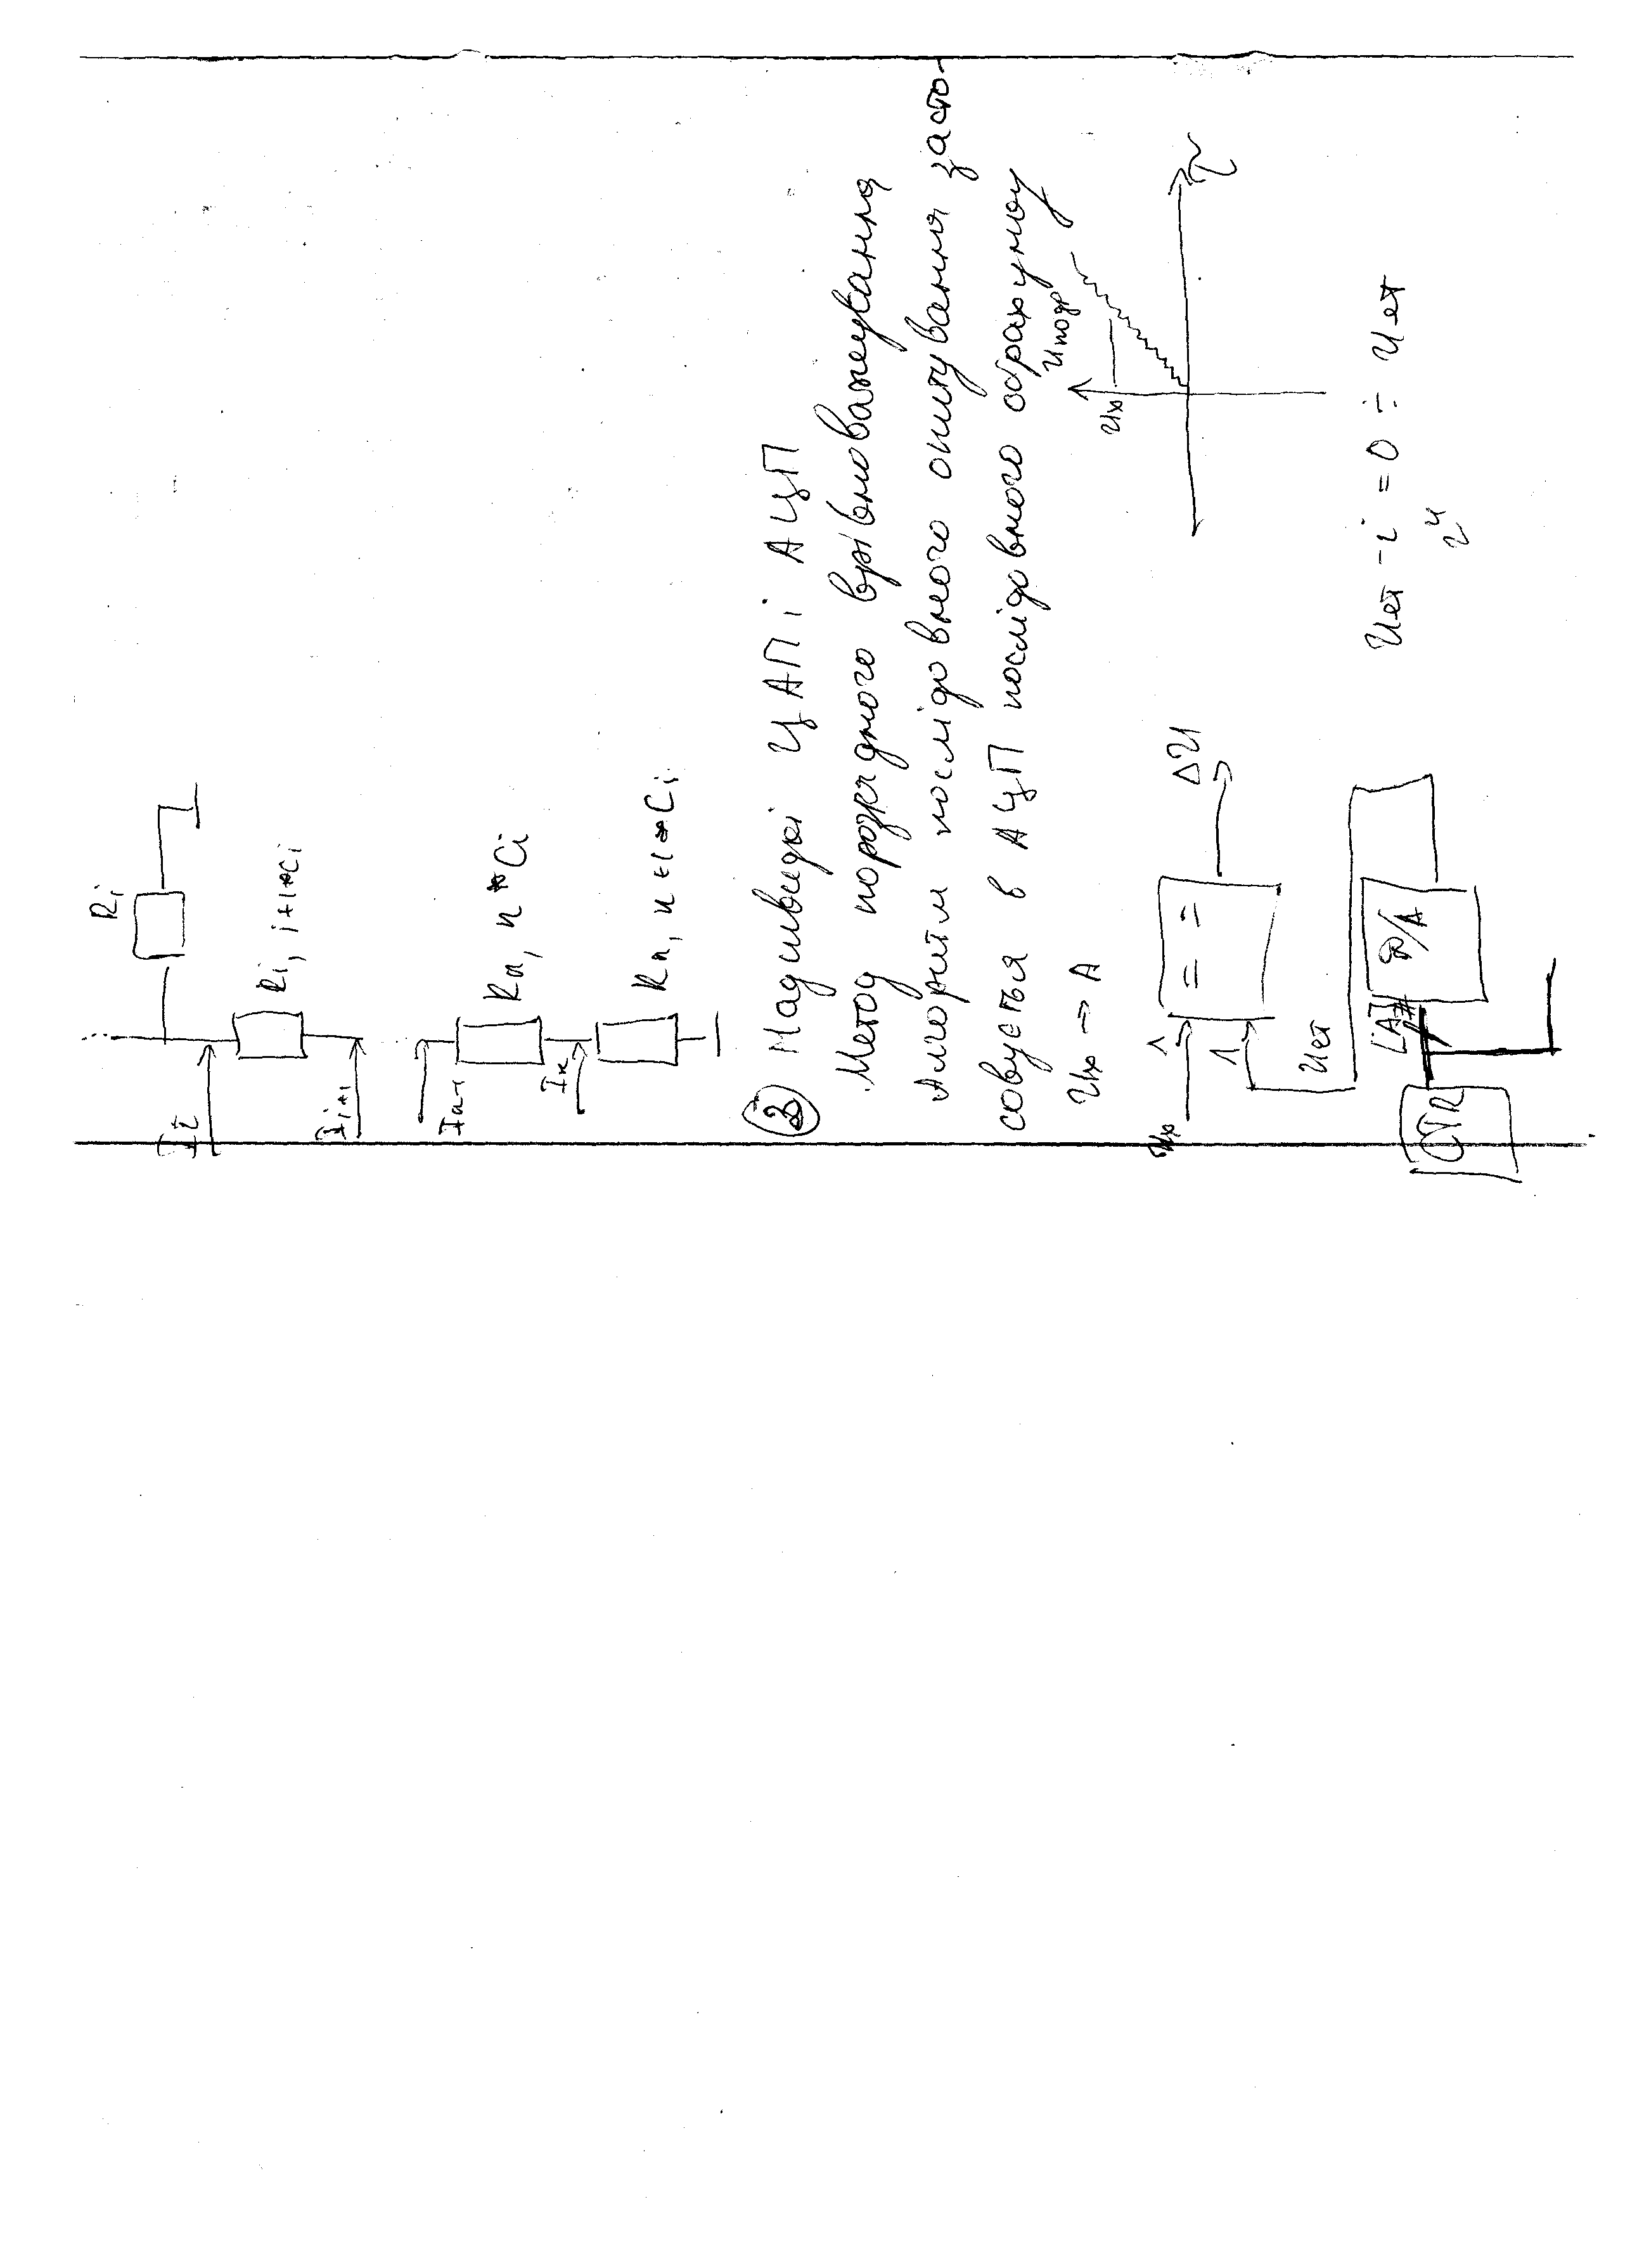 Ri
Ii
Ri, i+1*Ci
Ii+1
In-1
Rn, n*Ci
In
Rn, n+1*Ci
3 Надшвидкі ЦАП і АЦП
Метод порозрядного врівноважування
Алгоритм послідовного опитування засто-
совується в АЦП послідовного обрахунку
Ux → A
Ux
ΔU
= =
Uет
D/A
CTR
Ux
τ
Uет - i = 0 ÷ Uет